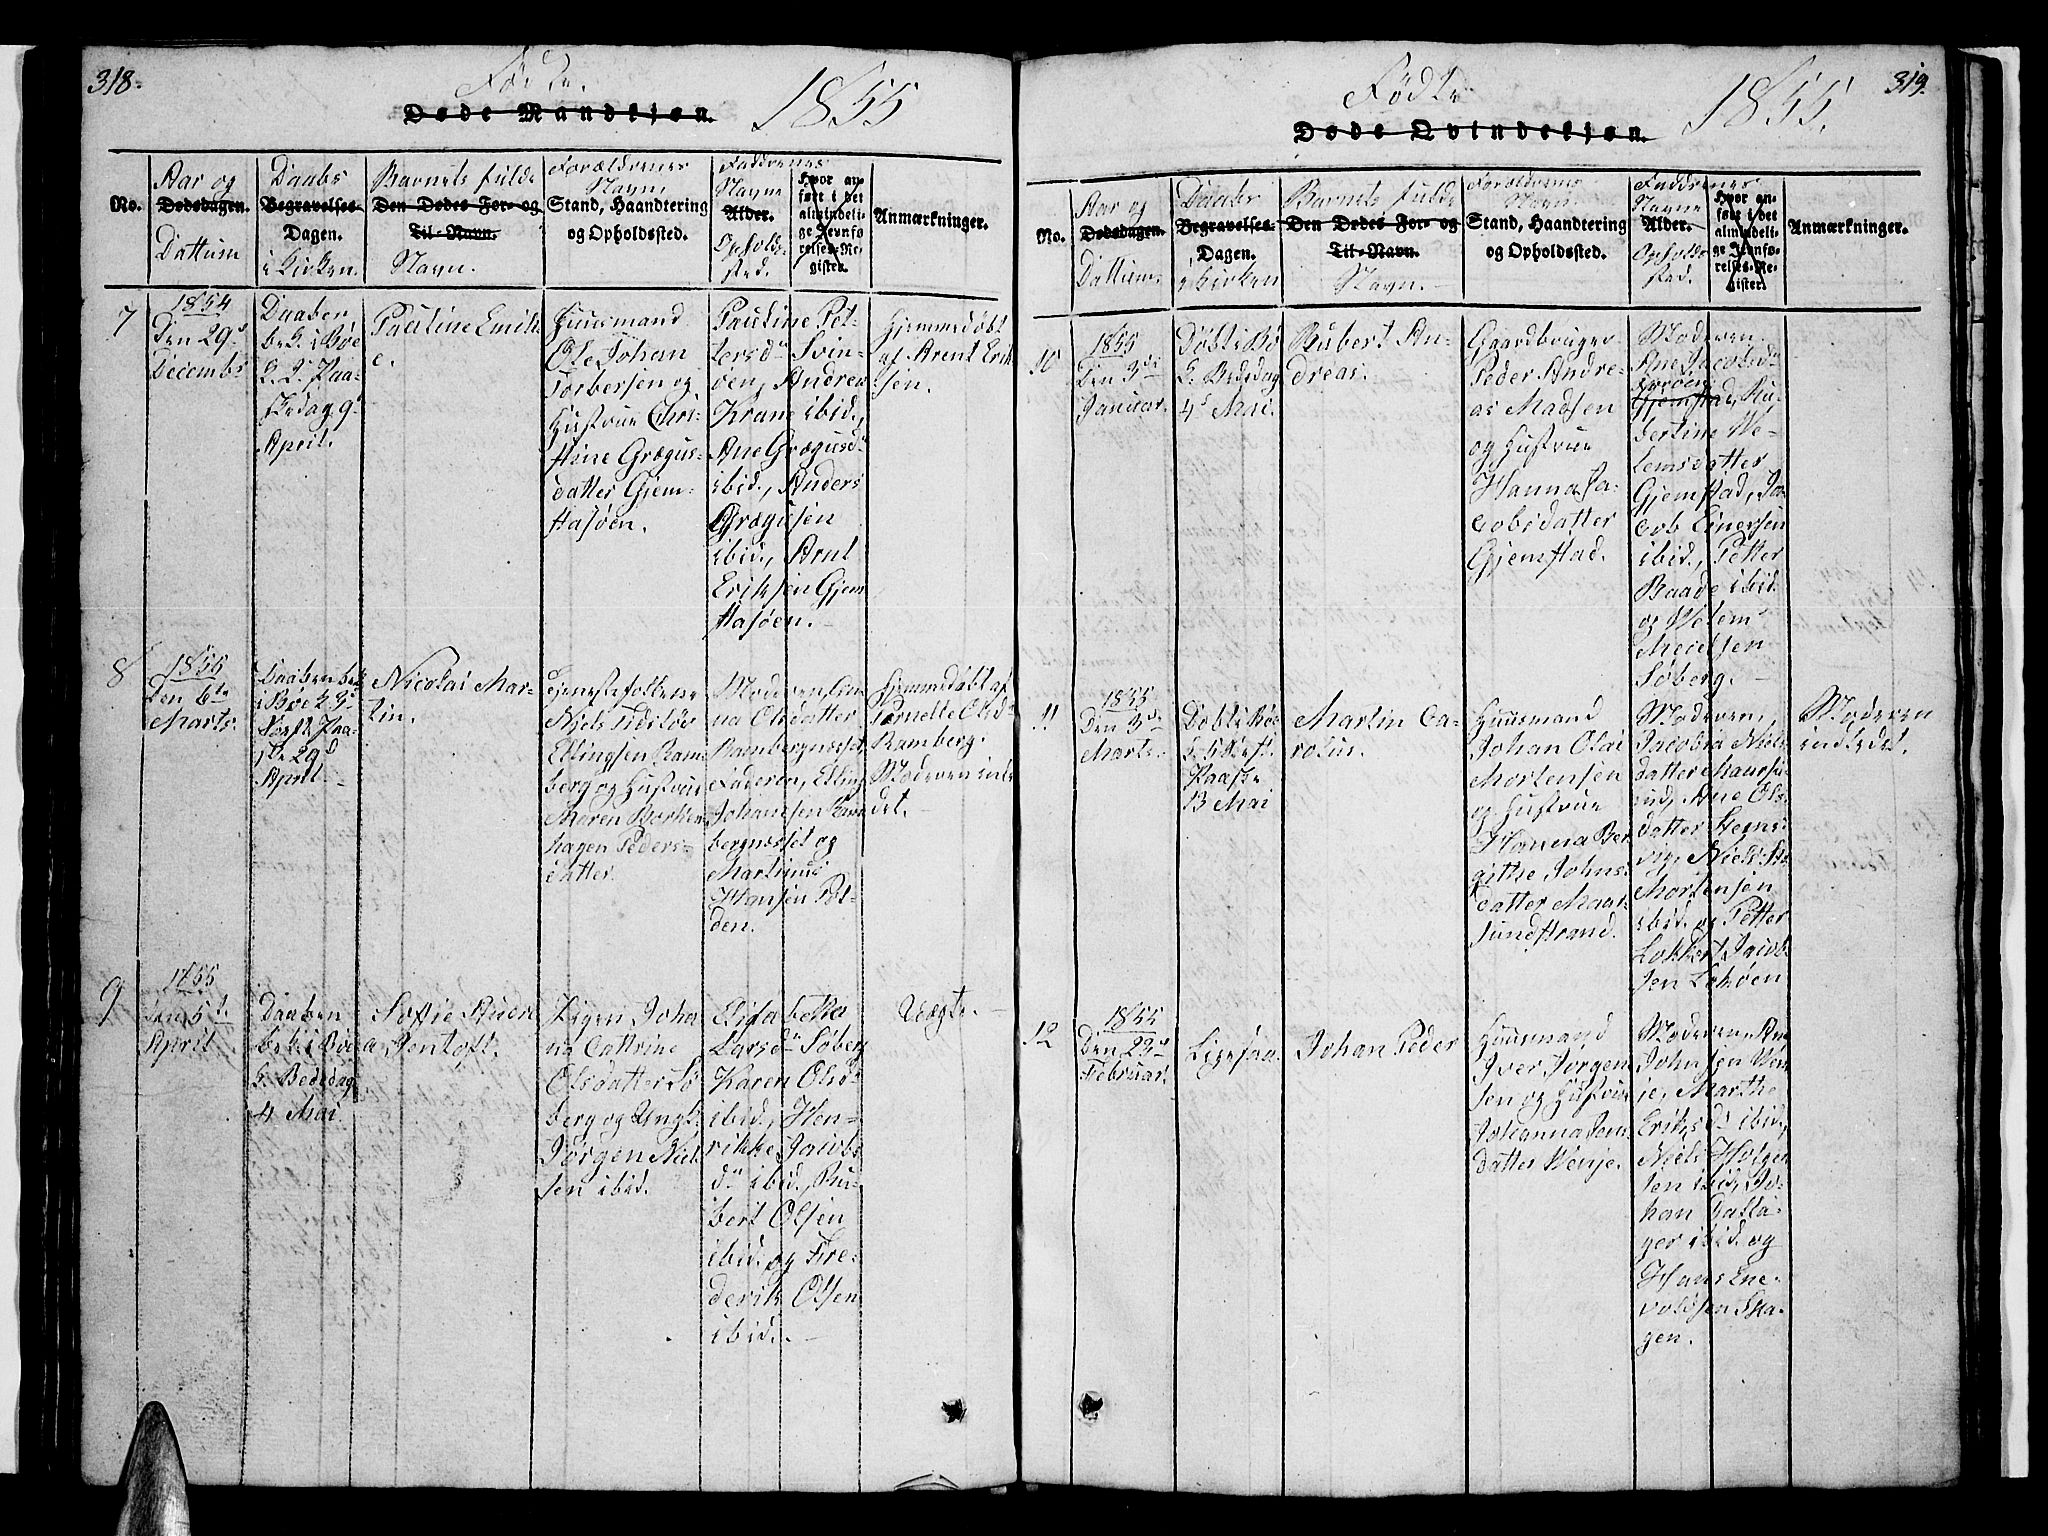 318.
Fødte.
Døde Mandkjøn.
1855
No.
Aar og
Dødsdagen.
Dattum
Daabs
Begravelses-
Dagen.
i Kirken.
Barnets fulde
Den Dødes For- og
Til-Navn.
Navn.
Forældrenes
Navn,
Stand, Haandtering
og Opholdssted.
Faddrenes
Navne
Alder.
Opholds-
sted.
Hvor an-
ført i det
almindeli-
ge Jevnfø-
relses-Re-
gister.
Anmærkninger.
7
1854
Den 29d
Decembr
Daaben
bek. i Bøe
K. 2. Paa-
skedag 9d
April.
Pauline Emili-
e.
Huusmand
Ole Johan
Torbersen og
Hustrue Chri-
stine Grægus-
datter Gjem-
stasøen.
Pauline Pet-
tersdr Svin-
øen, Andrea
Krane ibid.,
Ane Grægusdr
ibid., Anders
Grægusen
ibid., Arnt
Eriksen Gjem-
stasøen.
Hjemmedøbt
af Arent Erik-
sen.
8
1855
Den 6te
Marts.
Daaben bek.
i Bøe K. 3d
S. eft. Paa-
ske 29d
April
Nicolai Mar-
tin.
Tjenestefolkene
Niels Tidslöv
Ellingsen Ram-
berg og Hustrue
Maren Borken-
hagen Peders-
datter
Moderen, An-
na Olsdatter
Rambergnæsset,
Faderen, Elling
Johansen Ram-
bergnæsset og
Martinus
Hansen Pol-
den.
Hjemmedøbt af
Pernelle Olsdr
Ramberg.
Moderen intro
det.
9
1855
Den 5t.
April
Daaben
bek. i Bøe
K. Bededag
4 Mai
Sofie Andre
a Jentoft.
Pigen Joha
na Cattrine
Olsdatter Sø
berg og Ungk.
Jørgen Niel-
sen ibid.
Elisabetha
Larsdr Søberg
Karen Olsdr
ibid., Hen-
rikke Jacobs
dr ibid., Ru-
bert Olsen
ibid. og Fre-
derik Olsen
ibid.
Uægte.
319.
Fødte
Døde Qvindekjøn.
1855.
No.
Aar og
Dødsdagen.
Dattum
Daabs
Begravelses-
Dagen.
i Kirken
Barnets fulde
Den Dødes For- og
Til-Navn.
Navn.
Forældrenes
Navn.
Stand, Haandtering
og Opholdssted.
Faddrenes
Navne
Alder.
Opholds-
sted.
Hvor an-
ført i det
almindeli-
ge Jevnfø-
relses-Re-
gister.
Anmærkninger.
10
1855
Den 3de
Januar.
Døbt i Bø
K. Bededag
4d Mai.
Rubert An-
dreas.
Gaardbruger
Peder Andre-
as Madsen
og Hustrue
Hanna Ja-
cobsdatter
Gjemstad.
Moderen,
Ane Jacobsdr
Søberg
Gjemstad, Ru-
bertine We-
lemsdatter
Gjemstad, Ja-
cob Einersen
ibid., Petter
Baade ibid.
og Welem
Meidsen
Søberg.
11
1855
Den 3de
Marts.
Døbt i Bøe
K. 5 S. eft.
Paaske
13 Mai
Martin Ca-
rolus.
Huusmand
Johan Olai
Mortensen
og Hustrue
Hanna Ber-
githe Johns-
datter Maar-
sundstrand.
Moderen,
Jacobia Niels
datter Maarsu-
nd, Ane Ols-
datter Steens-
vig, Niels
Mortensen
ibid. og Petter
Lokkert Jacob-
sen Lokøen
Moderen
indledet.
12
1855
Den 23d
Februar.
Ligesaa
Johan Peder
Huusmand
Iver Jørgen-
sen og Hustrue
Johanna Jens-
datter Wenje.
Moderen, Ane
Johnsen Wen-
je, Marthe
Eriksdr ibid.,
Niels Holgen
sen ibid., Jo-
han Galla-
ger ibid. og
Hans Ene-
voldsen Ska-
gen.